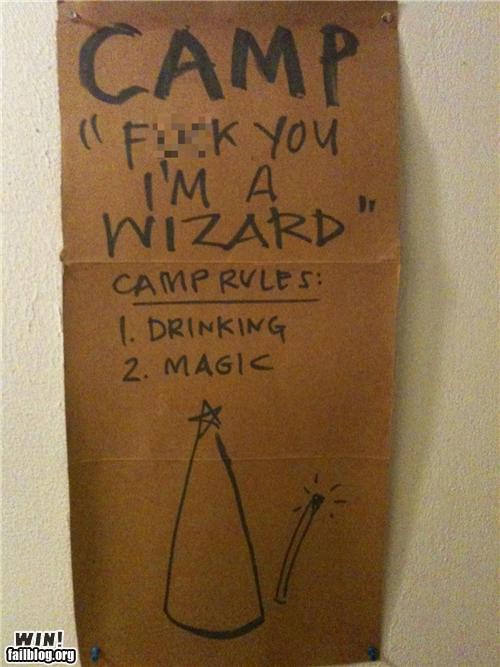 CAMP
"F
K YOU
I'M A
WIZARD"
CAMP RULES:
1. DRINKING
2. MAGIC
WIN!
failblog.org